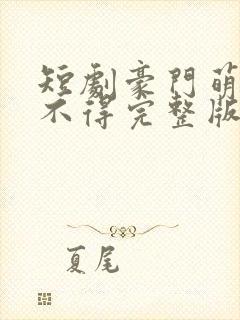 短劇豪門萌
不得完整版
夏尾